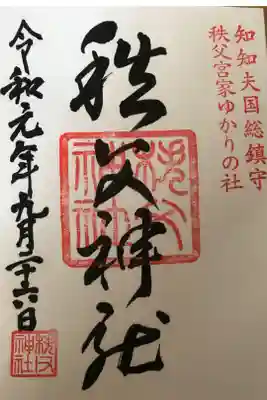 知知夫国総鎮守
秩父宮家ゆかりの社
秩父神社
令和元年九月二十六日
秩父神社
秩父神社